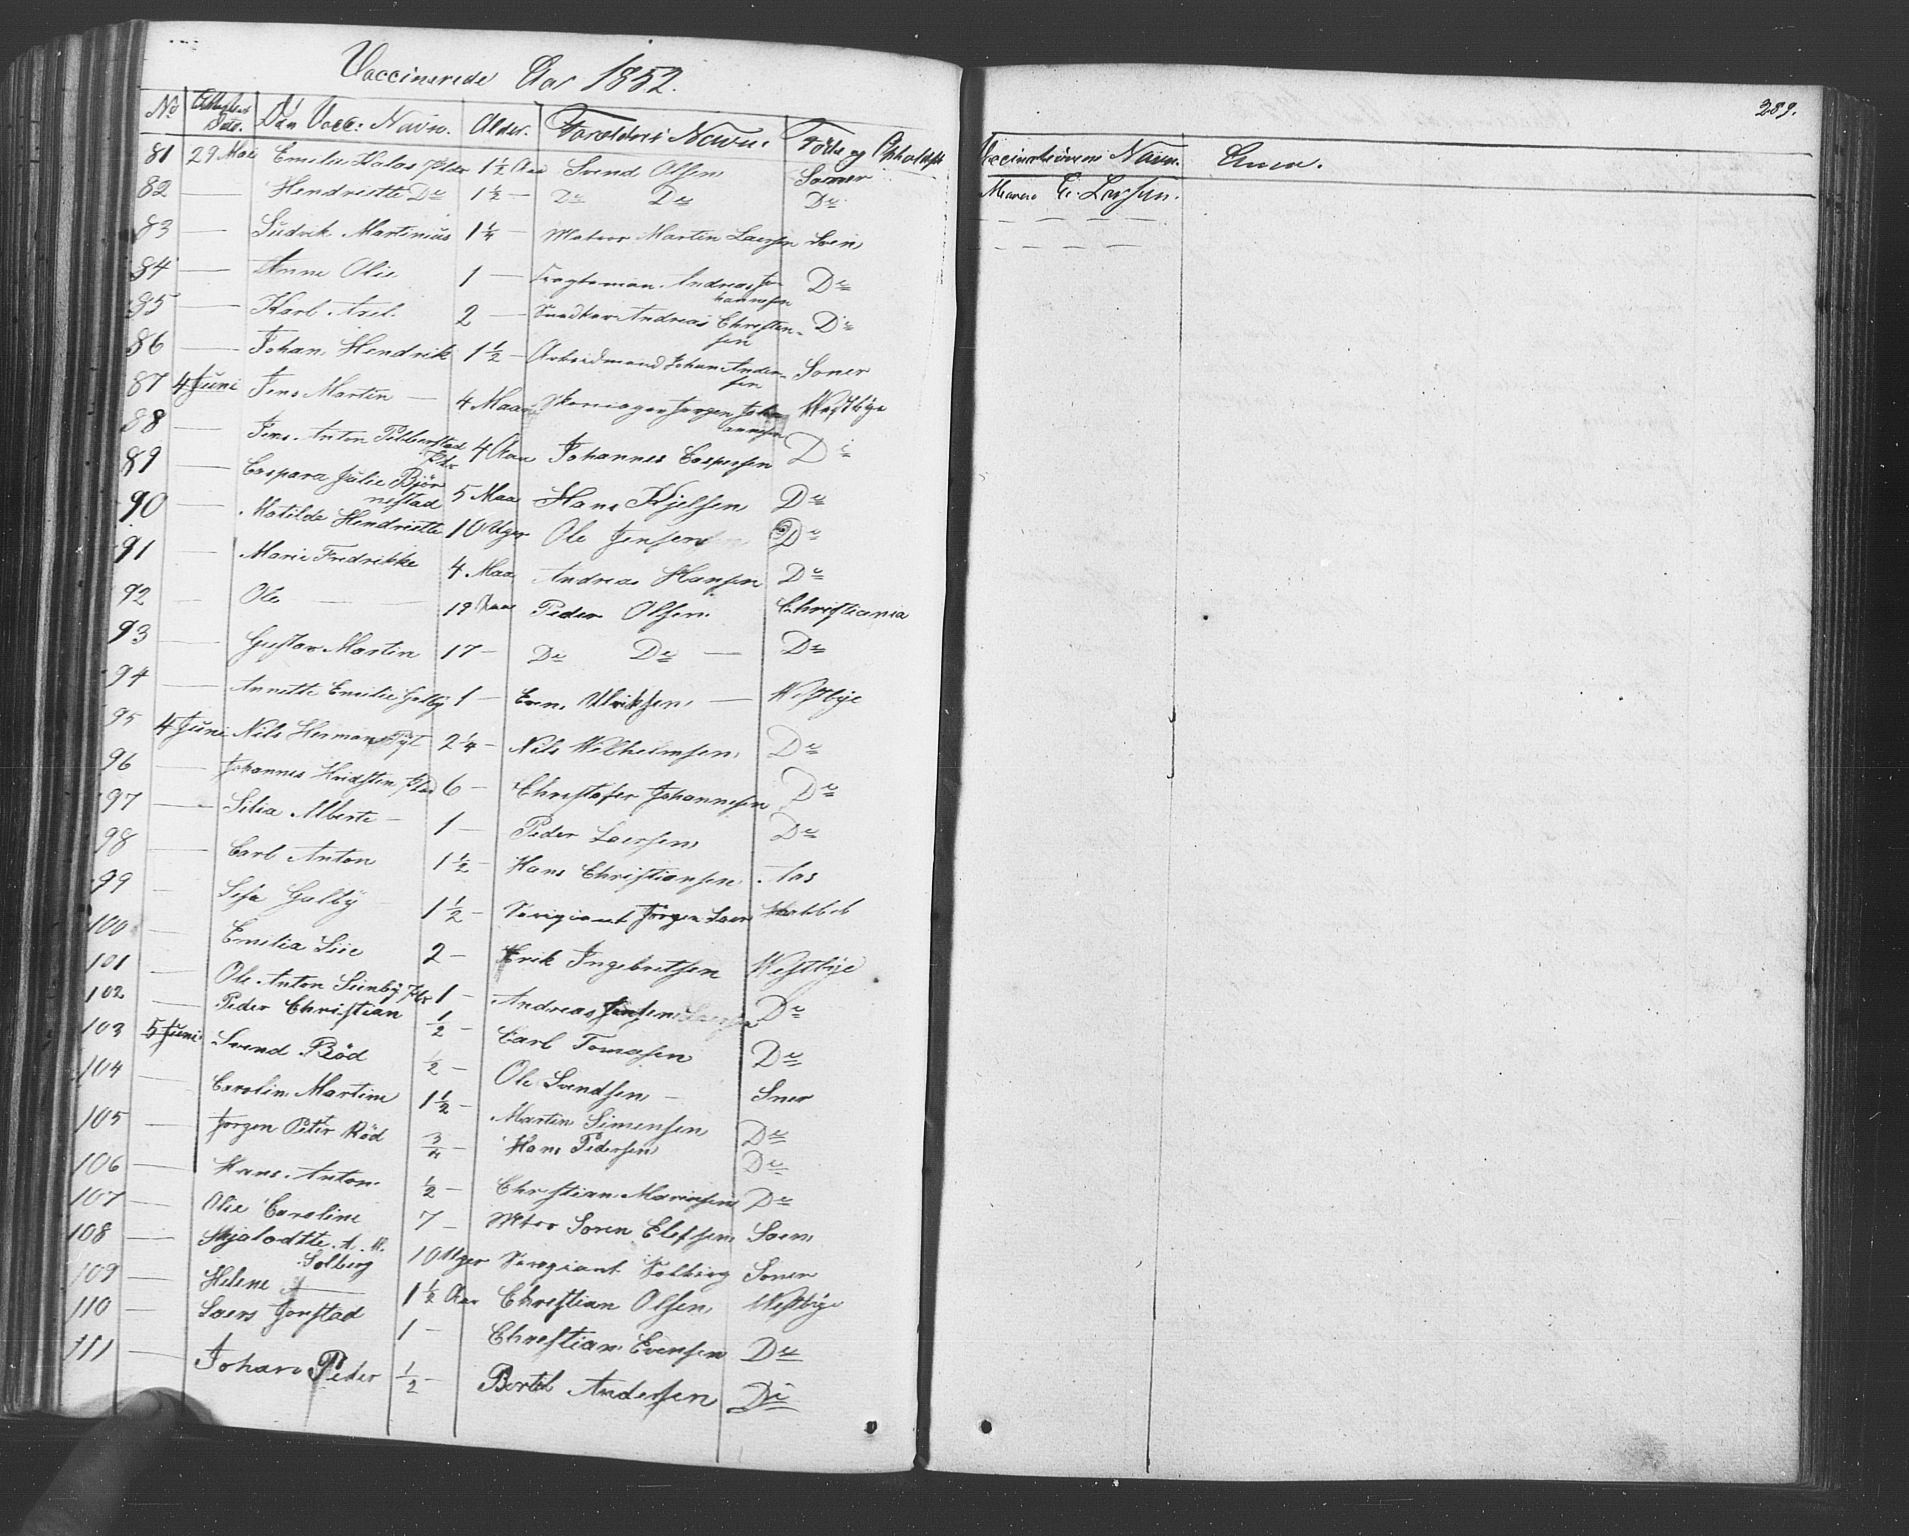 Vaccinerede Aar 1852.
289.
No Attestens Dato. Den Vacc: Navn. Alder. Forældres Navn. Föde og Opholdst
Vaccinatörens Navn. Anm.
81 29 Mai Emilie Pldr 1½ Aar Svend Olsen Soner
Maren C. Larsen.
82 — Hendriette Do 1½ — Do Do Do
83 — Ludvik Martinius 1¼ — Matros Martin Laersen Soen
84 — Anne Olie 1 — Andreas Johannesen Do
85 — Karl Axel 2 — Snedker Andreas Christensen Do
86 — Johan Hendrik 1½ — Arbeidmand Johan Andersen Soner
87 4 Juni Jens Martin — 4 Maan Skomager Jørgen Johannesen Westbye
88 — Jens Anton 4 Aar Johannes Caspersen Do
89 — Caspara Julie Björnestad 5 Maa Hans Kjelsen Do
90 — Matilde Hendriette 10 Uger Ole Jensen Do
91 — Marie Fredrikke 4 Maa Andreas Hansen Do
92 — Ole — 19 Aar Peder Olsen Christiania
93 — Gustav Martin 17 — Do Do — Do
94 — Annette Emilie Galby 1 — Even Ulriksen — Westbye
95 4 Juni Nils Herman 2¼ — Nils Wilhelmsen Do
96 — Johannes Pld 6 — Christofer Johannesen Do
97 — Silia Alberte — 1 — Peder Laersen Do
98 — Carl Anton 1½ — Hans Christiansen Aas
99 — Galby 1½ — Sergiant Jörgen Laers
100 — Emilia Siie 2 — Erik Ingebretsen Westbye
101 — Ole Anton Sunby Pldr 1 — Andreas Jensen Do
102 — Peder Christian ½ — Carl Tomasen Do
103 5 Juni Svend Röd ½ — Ole Svendsen — Sner
104 — Carolin Martine 1½ — Martin Simensen Do
105 — Jorgen Peter Röd ¾ — Hans Pedersen Do
106 — Hans Anton ½ — Christian Do
107 — Olie Caroline 7 — Mtro Soren Elefsen Soen
108 — A. M. Solberg 10 Uger Sergiant Solberg Soner
109 — Helene — 1½ Aar Christian Olsen Westbye
110 — Laers Jorstad 1 — Christian Evensen Do
111 — Johan Peder ½ — Bertel Andersen Do